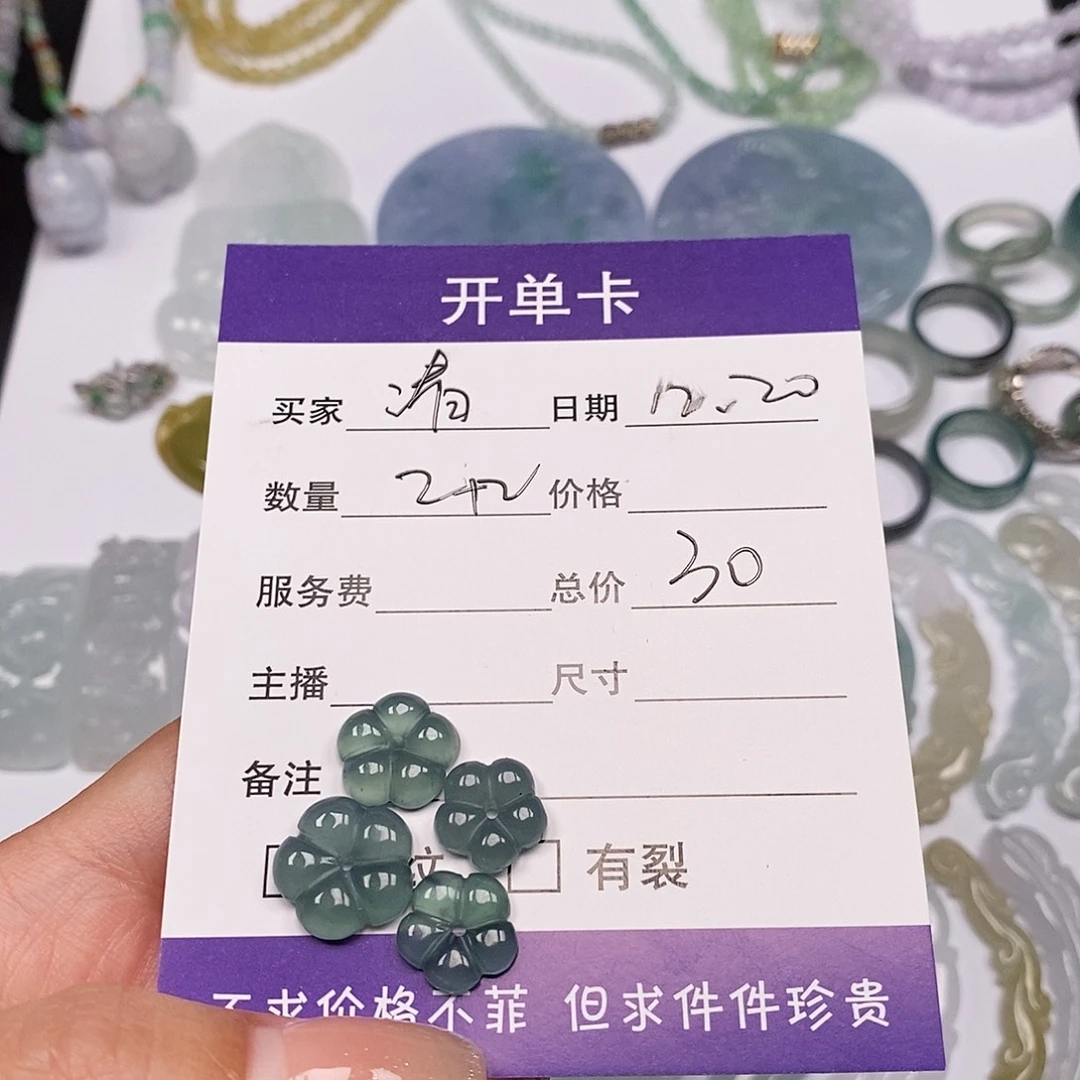 开单卡
买家 清 日期 12.20
数量 2+2 价格
服务费 总价 30
主播 尺寸
备注
纹 有裂
不求价格不菲 但求件件珍贵